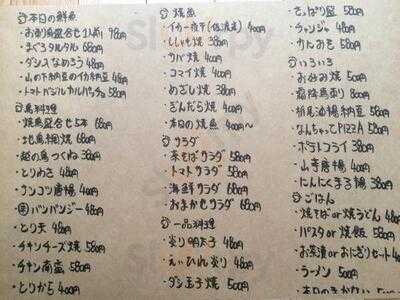 本日の鮮魚
・お刺身盛合せ1人前 980円
・まぐろタルタル 680円
・ダシスなめろう 480円
・山の下納豆のイカ納豆 480円
・トマトバジルカルパッチョ 580円
鳥料理
・焼鳥盛合せ5本 680円
・地鳥網焼 680円
・越の鳥つくね 380円
・とりわさ 480円
・ナンコツ唐揚 400円
・バンバンジー 480円
・とり天 480円
・チキンチーズ焼 580円
・チキン南蛮 580円
・とりから 400円
焼魚
・イカ一夜干(佐渡産) 400円
・ししゃも焼 380円
・サバ焼 400円
・コマイ焼 400円
・めざし焼 380円
・ぎんだら焼 400円
・本日の焼魚 400円〜
サラダ
・茶そばサラダ 580円
・トマトサラダ 580円
・海鮮サラダ 680円
・おまかせサラダ 680円
一品料理
・炙り明太子 480円
・えいひれ炙り 480円
・ダシ玉子焼 500円
・さっぱり盛 580円
・チャンジャ 480円
・かにみそ 480円
いろいろ
・お好み焼 500円
・栃尾油揚納豆 580円
・なんちゃってPIZZA 580円
・ポテトフライ 380円
・山芋唐揚 400円
・にんにくまる揚 380円
ごはん
・焼そば or 焼うどん 480円
・パスタ or 焼飯 580円
・お茶漬 or おにぎりセット 400円
・ラーメン 500円